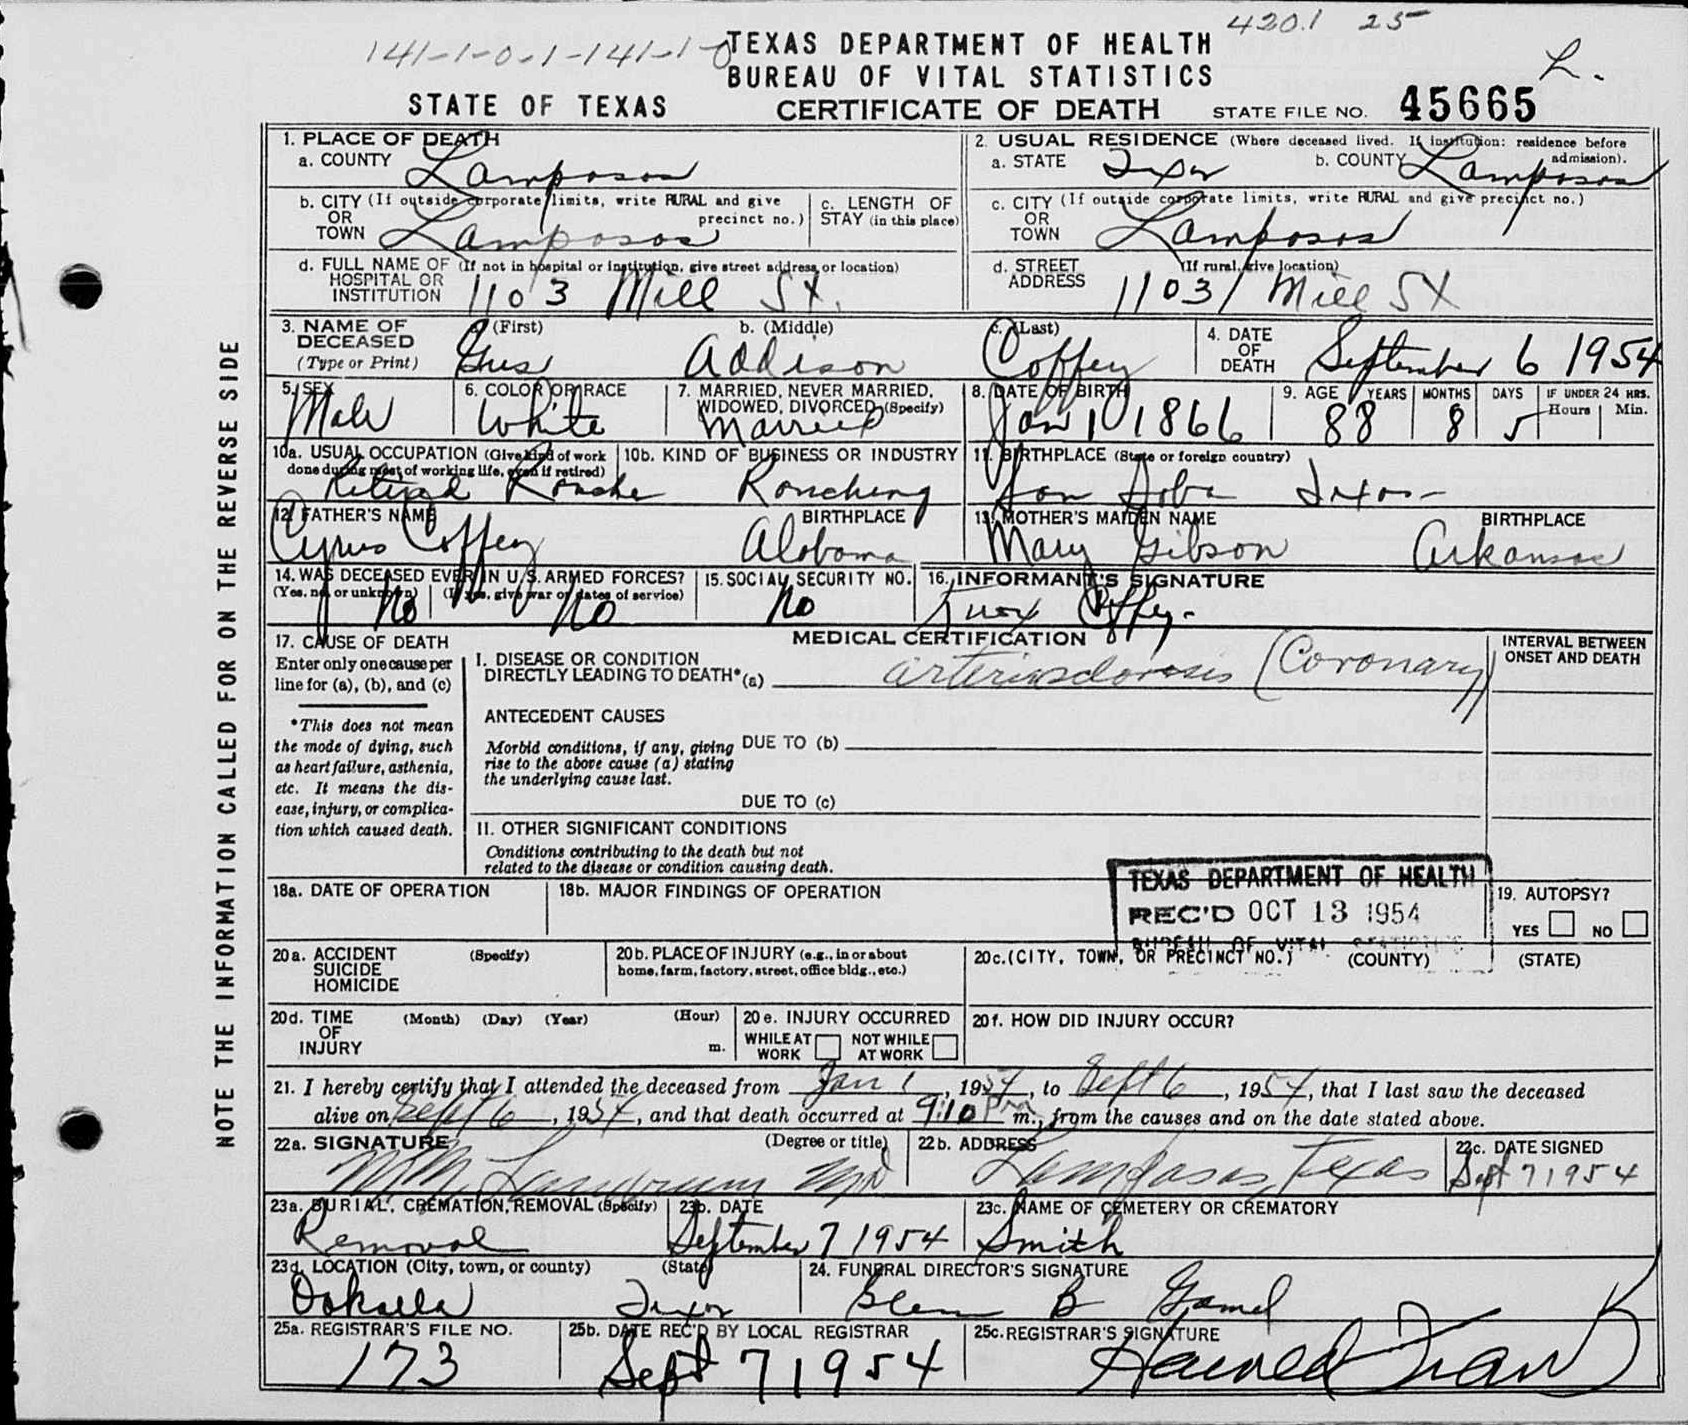 4201 25
141-1-0-1-141-1-0
TEXAS DEPARTMENT OF HEALTH
BUREAU OF VITAL STATISTICS
L.
STATE OF TEXAS CERTIFICATE OF DEATH STATE FILE NO. 45665
NOTE THE INFORMATION CALLED FOR ON THE REVERSE SIDE
1. PLACE OF DEATH
a. COUNTY Lampasas
2. USUAL RESIDENCE (Where deceased lived. If institution: residence before admission).
a. STATE Texas b. COUNTY Lampasas
b. CITY (If outside corporate limits, write RURAL and give precinct no.)
OR
TOWN Lampasas
c. LENGTH OF
STAY (in this place)
c. CITY (If outside corporate limits, write RURAL and give precinct no.)
OR
TOWN Lampasas
d. FULL NAME OF (If not in hospital or institution, give street address or location)
HOSPITAL OR
INSTITUTION 1103 Mill St.
d. STREET (If rural, give location)
ADDRESS 1103 Mill St
3. NAME OF DECEASED
(Type or Print)
a. (First) b. (Middle) c. (Last)
Gus Addison Coffey
4. DATE OF DEATH September 6 1954
5. SEX
Male
6. COLOR OR RACE
White
7. MARRIED, NEVER MARRIED,
WIDOWED, DIVORCED (Specify)
Married
8. DATE OF BIRTH
Jan 1 1866
9. AGE YEARS MONTHS DAYS IF UNDER 24 HRS.
Hours Min.
88 8 5
10a. USUAL OCCUPATION (Give kind of work
done during most of working life, even if retired)
Retired
10b. KIND OF BUSINESS OR INDUSTRY
Ranching
11. BIRTHPLACE (State or foreign country)
San Saba Texas
12. FATHER'S NAME BIRTHPLACE
Cyrus Coffey Alabama
13. MOTHER'S MAIDEN NAME BIRTHPLACE
Mary Gibson Arkansas
14. WAS DECEASED EVER IN U.S. ARMED FORCES?
(Yes, no, or unknown) (If yes, give war or dates of service)
No No
15. SOCIAL SECURITY NO.
No
16. INFORMANT'S SIGNATURE
Knox Coffey
17. CAUSE OF DEATH
Enter only one cause per
line for (a), (b), and (c)
*This does not mean
the mode of dying, such
as heart failure, asthenia,
etc. It means the dis-
ease, injury, or complica-
tion which caused death.
MEDICAL CERTIFICATION
INTERVAL BETWEEN
ONSET AND DEATH
I. DISEASE OR CONDITION
DIRECTLY LEADING TO DEATH* (a) arteriosclorosis (Coronary)
ANTECEDENT CAUSES
Morbid conditions, if any, giving
rise to the above cause (a) stating
the underlying cause last.
DUE TO (b)
DUE TO (c)
II. OTHER SIGNIFICANT CONDITIONS
Conditions contributing to the death but not
related to the disease or condition causing death.
18a. DATE OF OPERATION 18b. MAJOR FINDINGS OF OPERATION
TEXAS DEPARTMENT OF HEALTH
REC'D OCT 13 1954
BUREAU OF VITAL STATISTICS
19. AUTOPSY?
YES NO
20a. ACCIDENT
SUICIDE
HOMICIDE
(Specify)
20b. PLACE OF INJURY (e.g., in or about
home, farm, factory, street, office bldg., etc.)
20c. (CITY, TOWN, OR PRECINCT NO.) (COUNTY) (STATE)
20d. TIME
OF
INJURY
(Month) (Day) (Year) (Hour)
m.
20e. INJURY OCCURRED
WHILE AT
WORK
NOT WHILE
AT WORK
20f. HOW DID INJURY OCCUR?
21. I hereby certify that I attended the deceased from Jan 1, 1954, to Sept 6, 1954, that I last saw the deceased
alive on Sept 6, 1954, and that death occurred at 9:10 Pm m., from the causes and on the date stated above.
22a. SIGNATURE (Degree or title)
M.M. Landrum MD
22b. ADDRESS
Lampasas, Texas
22c. DATE SIGNED
Sept 7 1954
23a. BURIAL, CREMATION, REMOVAL (Specify)
Removal
23b. DATE
September 7 1954
23c. NAME OF CEMETERY OR CREMATORY
Smith
23d. LOCATION (City, town, or county) (State)
Oakalla Texas
24. FUNERAL DIRECTOR'S SIGNATURE
Glenn B Gamel
25a. REGISTRAR'S FILE NO.
173
25b. DATE REC'D BY LOCAL REGISTRAR
Sept 7 1954
25c. REGISTRAR'S SIGNATURE
Harold